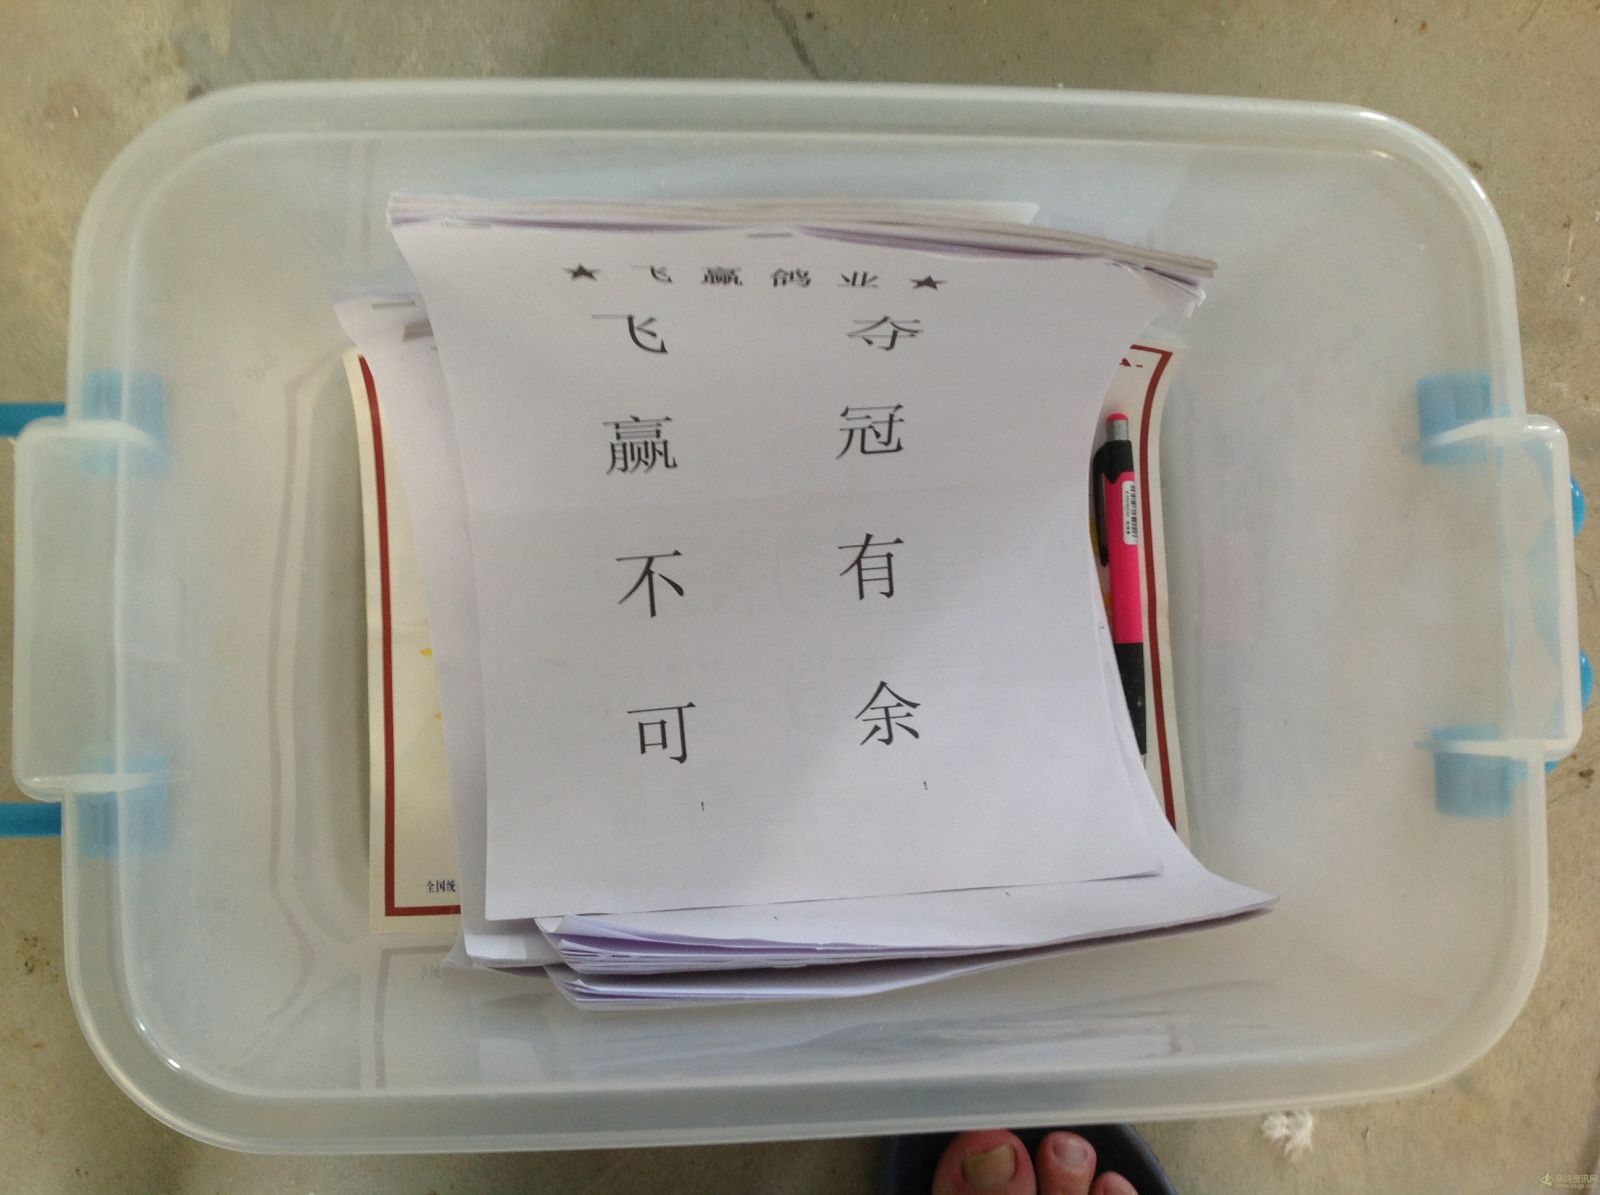 ★ 飞 赢 鸽 业 ★
飞赢不可！
夺冠有余！
全国统